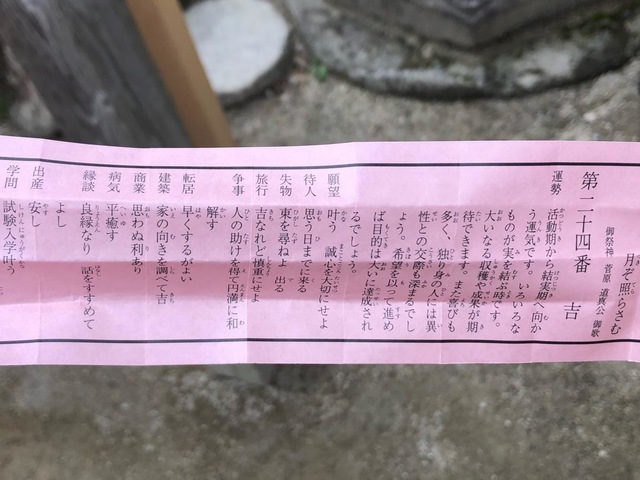 月ぞ照らさむ
御祭神 菅原 道真公 御歌
第二十四番 吉
運勢 活動期から結実期へ向か
う運気です。いろいろな
ものが実を結ぶ時です。
大いなる収穫や成果が期
待できます。また喜びも
多く、独り身の人には異
性との交際も深まるでし
ょう。希望を以って進め
ば目的は大いに達成され
るでしょう。
願望 叶う 誠心を大切にせよ
待人 思う日までに来る
失物 東を尋ねよ 出る
旅行 吉なれど慎重にせよ
争事 人の助けを得て円満に和
解す
転居 早くするがよい
建築 家の向きを調べて吉
商業 思わぬ利あり
病気 平癒す
縁談 良縁なり 話をすすめて
よし
出産 安し
学問 試験入学叶う